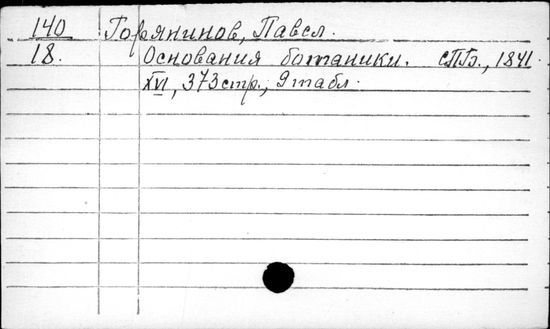 140 Горянинов, Павел.
18. Основания ботаники. СПБ., 1841.
XVI, 373 стр., 9 табл.